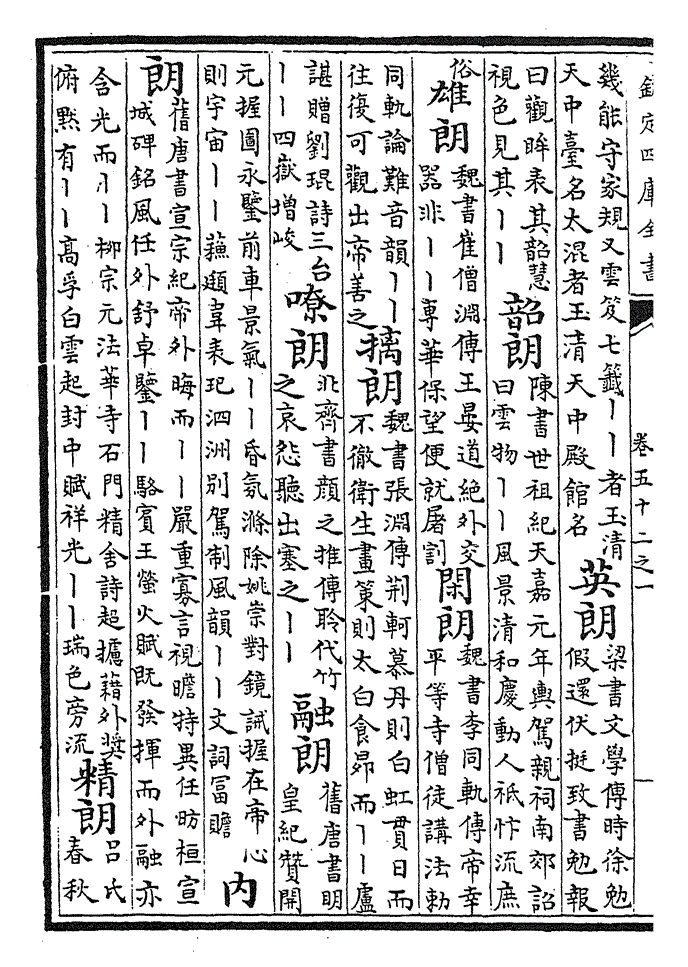 欽定四庫全書 卷五十二之一
幾能守家規又雲笈七籤丨丨者玉清
天中臺名太混者玉清天中殿館名
英朗
梁書文學傳時徐勉
假還伏挺致書勉報
曰觀眸表其韶慧
視色見其丨丨
韶朗
陳書世祖紀天嘉元年輿駕親祠南郊詔
曰雲物丨丨風景清和慶動人祗忭流庶
俗
雄朗
魏書崔僧淵傳王晏道絶外交
器非丨丨專華保望便就屠割
閑朗
魏書李同軌傳帝幸
平等寺僧徒講法勅
同軌論難音韻丨丨
往復可觀出帝善之
摛朗
魏書張淵傳荆軻慕丹則白虹貫日而
不徹衛生畫策則太白食昴而丨丨盧
諶贈劉琨詩三台
丨丨四嶽增峻
嘹朗
北齊書顔之推傳聆代竹
之哀怨聽出塞之丨丨
融朗
舊唐書明
皇紀贊開
元握圖永鑒前車景氣丨丨昏氛滌除姚崇對鏡誡握在帝心
則宇宙丨丨蘇頲韋表玘泗洲別駕制風韻丨丨文詞富贍
內
朗
舊唐書宣宗紀帝外晦而丨丨嚴重寡言視瞻特異任昉桓宣
城碑銘風任外舒卓鑒丨丨駱賓王螢火賦既發揮而外融亦
含光而丨丨柳宗元法華寺石門精舍詩超攄藉外奬
俯黙有丨丨高孚白雲起封中賦祥光丨丨瑞色旁流
精朗
吕氏
春秋